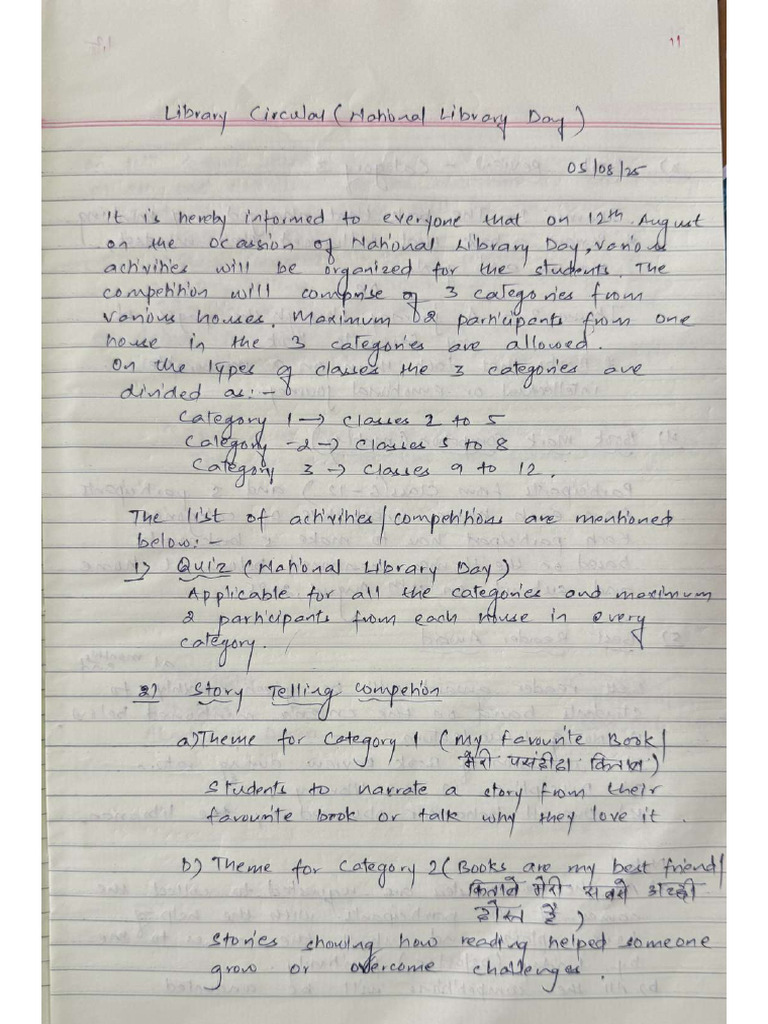 11
Library Circular (National Library Day)
05/08/25
It is hereby informed to everyone that on 12th August
on the ocassion of National Library Day, various
activities will be organized for the students. The
competition will comprise of 3 categories from
various houses. Maximum 2 participants from one
house in the 3 categories are allowed.
On the types of classes the 3 categories are
divided as:-
Category 1 → Classes 2 to 5
Category -2 → Classes 5 to 8
Category 3 → Classes 9 to 12.
The list of activities/competitions are mentioned
below:-
1) Quiz (National Library Day)
Applicable for all the categories and maximum
2 participants from each house in every
category.
2) Story Telling Competion
a) Theme for Category 1 (My favourite Book/
मेरी पसंदीदा किताब)
Students to narrate a story from their
favourite book or talk why they love it.
b) Theme for Category 2 (Books are my best friend/
किताबे मेरी सबसे अच्छी
दोस्त है)
Stories showing how reading helped someone
grow or overcome challenges.